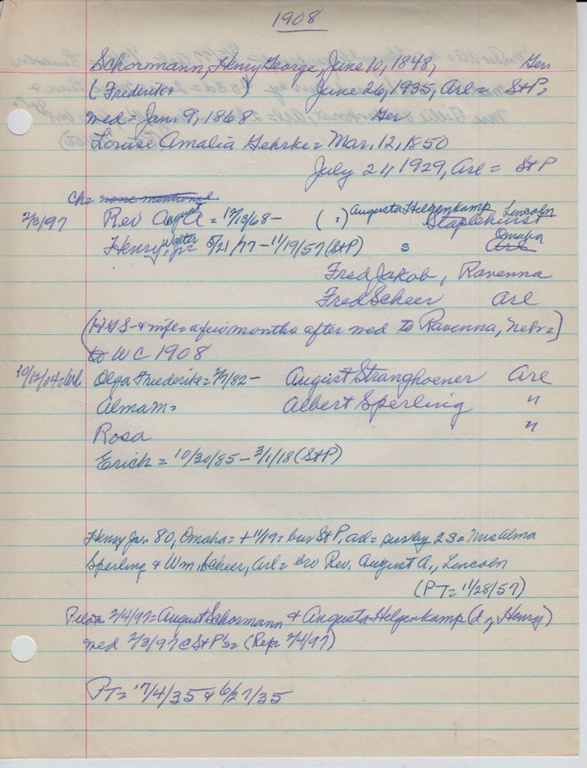 1908
Schormann, Henry George, June 10, 1848, Ger
(Frederika ) June 26, 1935, Arl = St P =
med = Jan. 9, 1868 Ger
Louise Amalia Gehrke = Mar. 12, 1850
July 24 1929, Arl = St P
Ch = none mentioned
2/3/97 Rev August A = 12/13/68 - ( = ) Augusta Helpenkamp Staplehurst Lincoln
Henry, Jr Walter 5/21/77 - 11/19/57 (St P) s Arl Omaha
Fred Jakob, Ravenna
Fred Scheer Arl
(H G S + mfls a few months after med to Ravenna, Nebr =)
to W C 1908
10/12/04 Arl Olga Friederike = 2/7/82 - August Stranghoener Arl
Alma M = Albert Sperling "
Rosa "
Erich = 10/30/85 - 3/1/18 (St P)
Henry Jr. 80, Omaha = + 11/19 = bur St P, Arl = surv by 23 = Mrs Alma
Sperling & Wm. Scheer, Arl = bro Rev. August A., Lincoln
(PT = 11/28/57)
Pilot 2/4/97 = August Schormann & Augusta Helpenkamp (d of Henry)
med 2/3/97 @ St P's = (Rep 2/4/97)
PT = 7/4/35 & 6/27/35